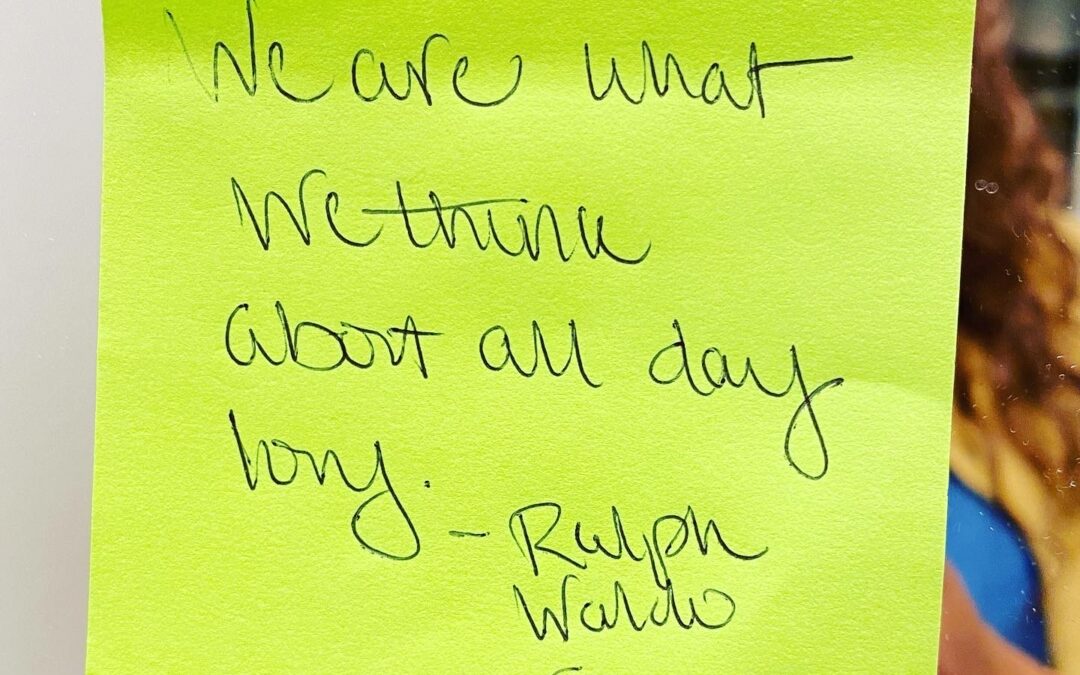 We are what
We think
about all day
long.
- Ralph
Waldo